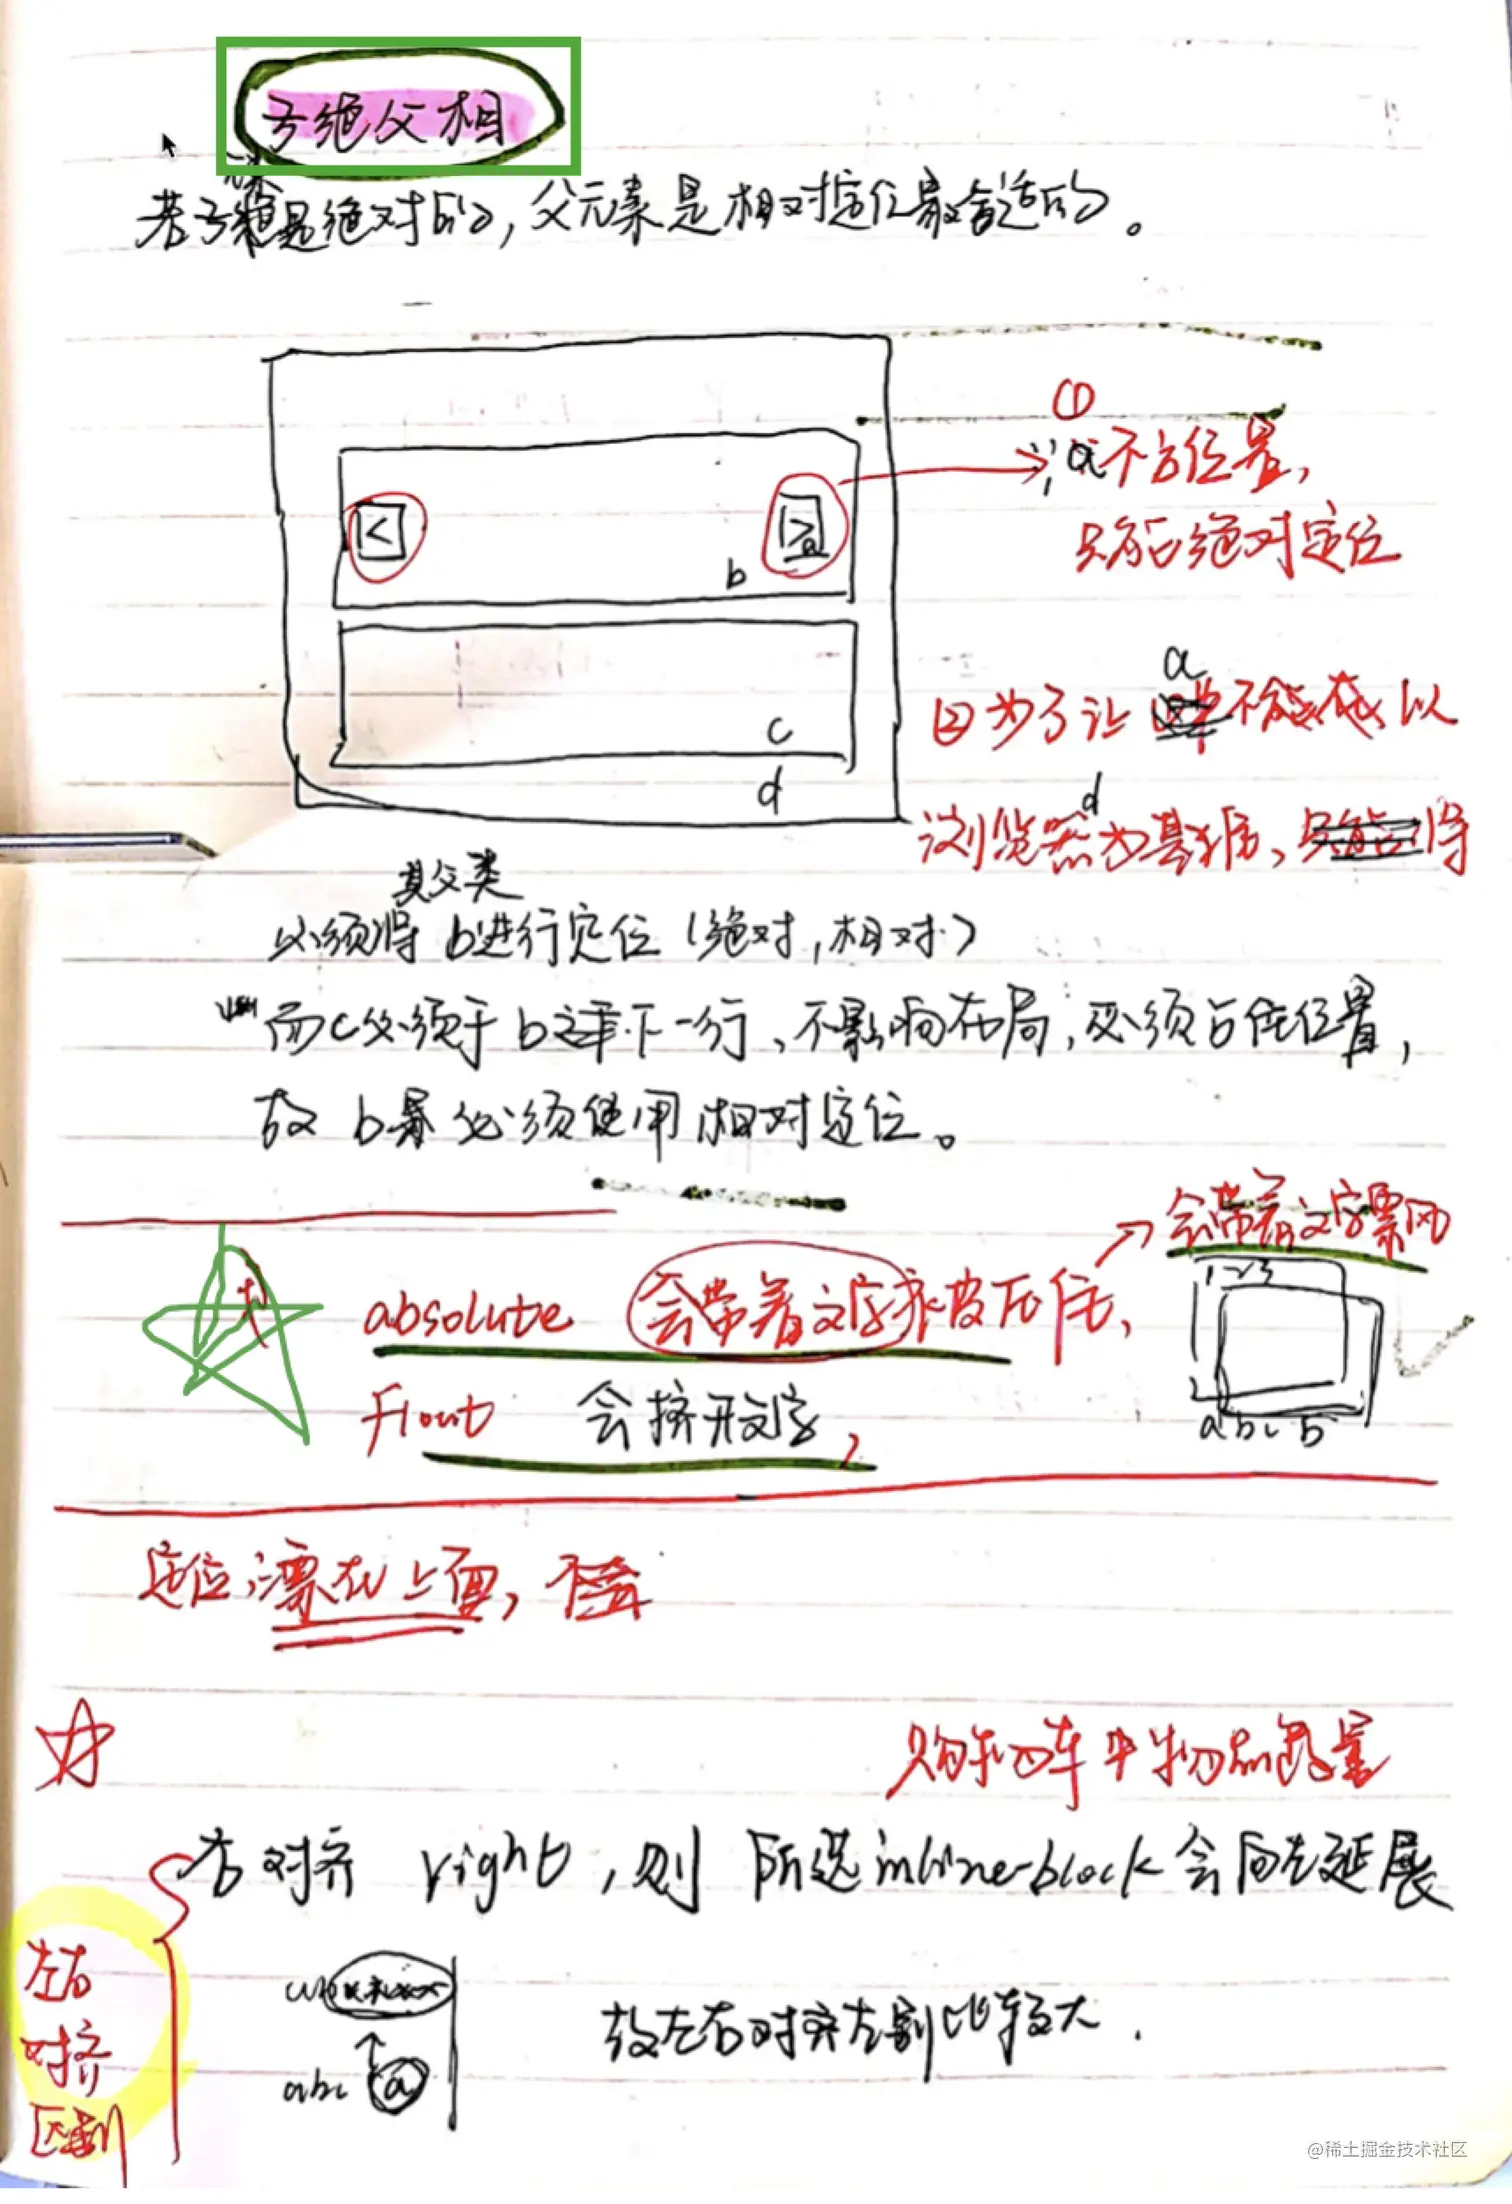 子绝父相
若子元素是绝对的，父元素是相对定位最合适的。
①
a不占位置，
只能绝对定位
<
>
a
b
c
d
因为了让 a 不能在以
浏览器d为基准，只能将
其父类
必须将b进行定位（绝对，相对）
而c必须于b之下一行，不影响布局，必须占住位置，
故b 必须使用相对定位。
会带着文字飘
absolute 会带着文字 被压住，
123
float 会挤开文字，
abc b
定位漂在上面，不会
购物车中物品数量
右对齐 right，则所选inline-block会向左延展
左右
对齐
区别
故左右对齐差别比较大.
abc a
@稀土掘金技术社区